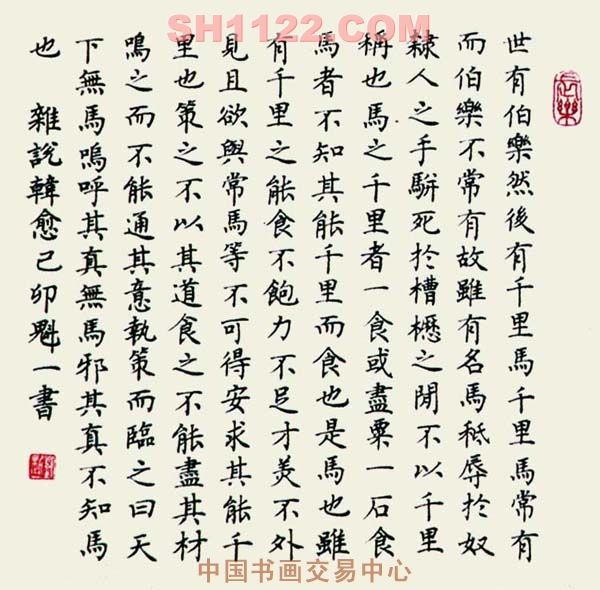 SH1122.COM
世有伯樂然後有千里馬千里馬常有
而伯樂不常有故雖有名馬秪辱於奴
隸人之手駢死於槽櫪之閒不以千里
稱也馬之千里者一食或盡粟一石食
馬者不知其能千里而食也是馬也雖
有千里之能食不飽力不足才美不外
見且欲與常馬等不可得安求其能千
里也策之不以其道食之不能盡其材
鳴之而不能通其意執策而臨之曰天
下無馬嗚呼其真無馬邪其真不知馬
也 雜說韓愈己卯魁一書
中国书画交易中心